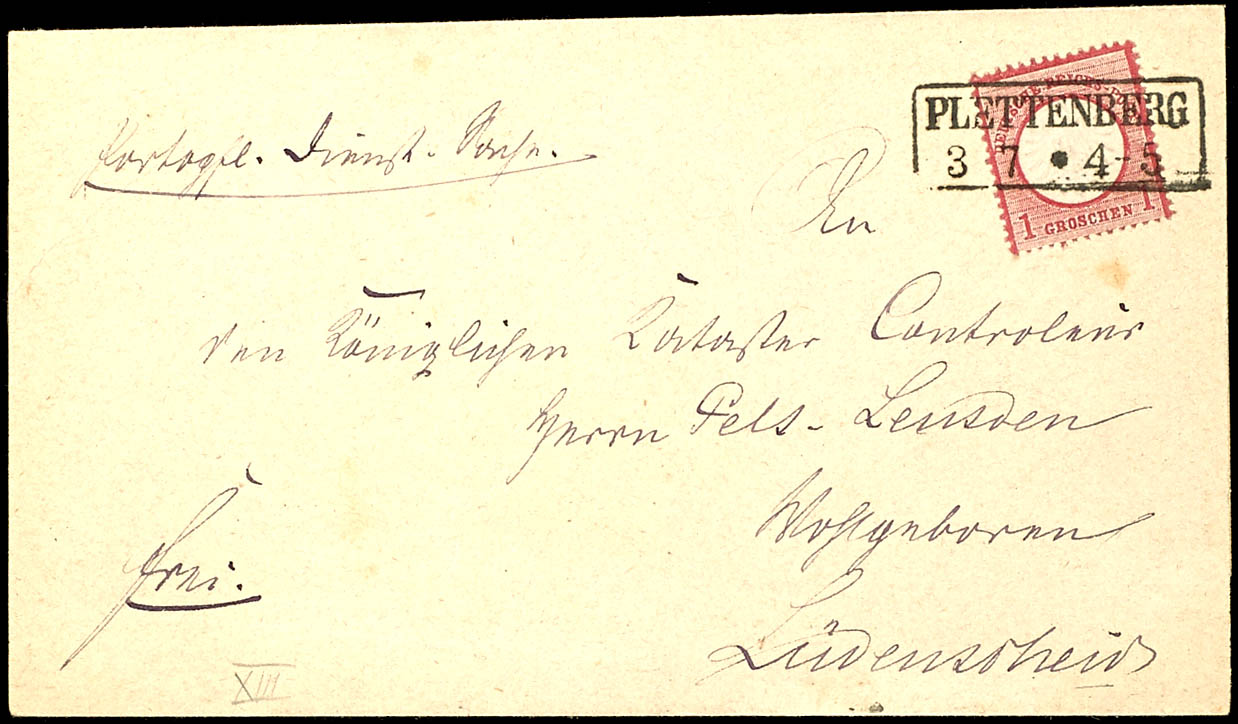 Portopfl. Dienst-Sache.
PLETTENBERG
3 7 * 4-5
DEUTSCHE REICHS-POST
1 GROSCHEN 1
An
den Königlichen Kataster Controleur
Herrn Pels-Leusden
Wohlgeboren
Lüdenscheid
frei.
XIII